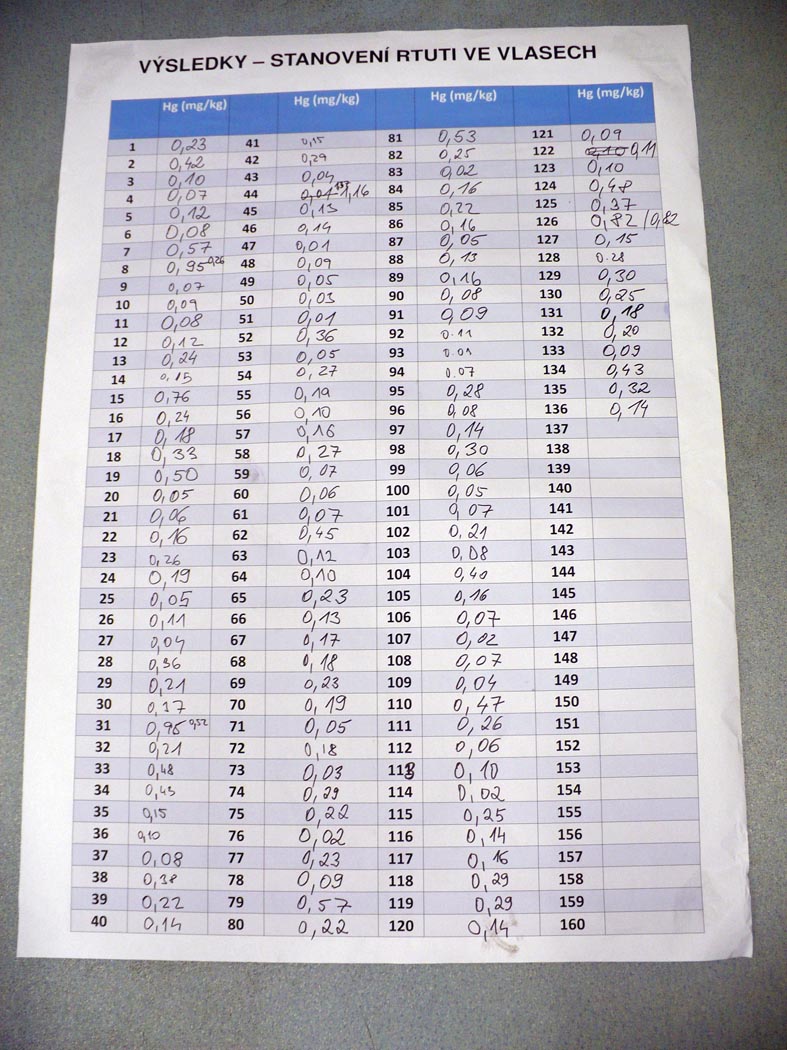 VÝSLEDKY – STANOVENÍ RTUTI VE VLASECH
Hg (mg/kg) Hg (mg/kg) Hg (mg/kg) Hg (mg/kg)
1 0,23 41 0,15 81 0,53 121 0,09
2 0,42 42 0,29 82 0,25 122 0,11
3 0,10 43 0,04 83 0,02 123 0,10
4 0,07 44 1,16 84 0,16 124 0,48
5 0,12 45 0,13 85 0,22 125 0,37
6 0,08 46 0,14 86 0,16 126 0,82 / 0,82
7 0,57 47 0,01 87 0,05 127 0,15
8 0,95 0,26 48 0,09 88 0,13 128 0.28
9 0,07 49 0,05 89 0,16 129 0,30
10 0,09 50 0,03 90 0,08 130 0,25
11 0,08 51 0,01 91 0,09 131 0,18
12 0,12 52 0,36 92 0.11 132 0,20
13 0,24 53 0,05 93 133 0,09
14 0,15 54 0,27 94 0.07 134 0,43
15 0,76 55 0,19 95 0,28 135 0,32
16 0,24 56 0,10 96 0,08 136 0,14
17 0,18 57 0,16 97 0,14 137
18 0,33 58 0,27 98 0,30 138
19 0,50 59 0,07 99 0,06 139
20 0,05 60 0,06 100 0,05 140
21 0,06 61 0,07 101 0,07 141
22 0,16 62 0,45 102 0,21 142
23 0,26 63 0,12 103 0,08 143
24 0,19 64 0,10 104 0,40 144
25 0,05 65 0,23 105 0,16 145
26 0,11 66 0,13 106 0,07 146
27 0,04 67 0,17 107 0,02 147
28 0,36 68 0,18 108 0,07 148
29 0,21 69 0,23 109 0,04 149
30 70 0,19 110 0,47 150
31 0,95 0,52 71 0,05 111 0,26 151
32 0,21 72 0,18 112 0,06 152
33 0,48 73 0,03 113 0,10 153
34 0,43 74 0,29 114 0,02 154
35 0,15 75 0,22 115 0,25 155
36 0,10 76 0,02 116 0,14 156
37 0,08 77 0,23 117 0,16 157
38 0,38 78 0,09 118 0,29 158
39 0,22 79 0,57 119 0,29 159
40 0,14 80 0,22 120 0,14 160